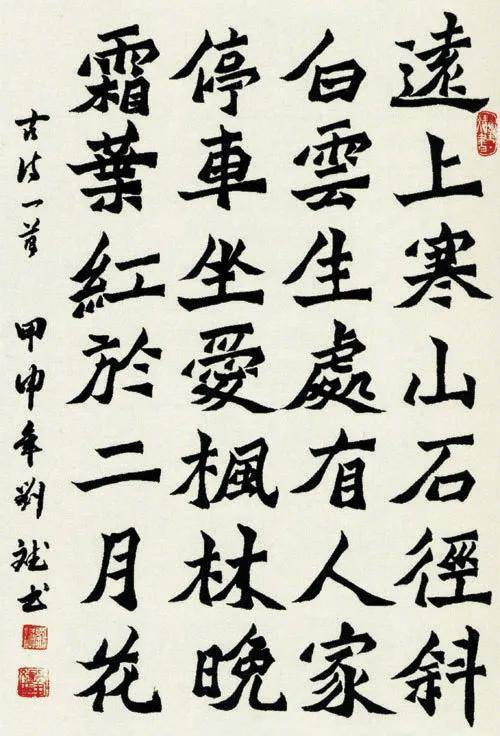 遠上寒山石徑斜
白雲生處有人家
停車坐愛楓林晚
霜葉紅於二月花
古詩一首 甲申年劉斌書